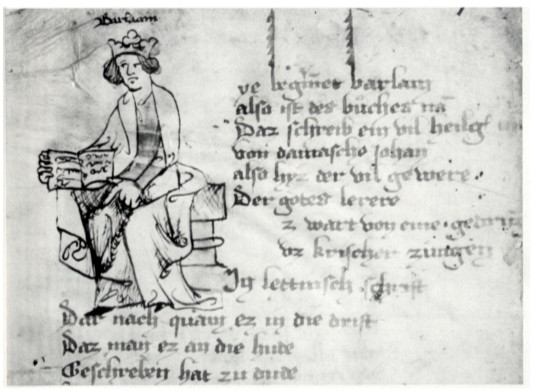 Barlaam
ye begiñet barlam
also ist des bůches nā
Daz schreib ein vil heilg̕
von damascho Johan̄
also hyz der vil gewere
Der gotes lerere
z wart von eine
vz krischer zungen
In lettinisch schrift
Dar nach quam ez in die drift
Daz man ez an die hute
Geschreben hat zu dude